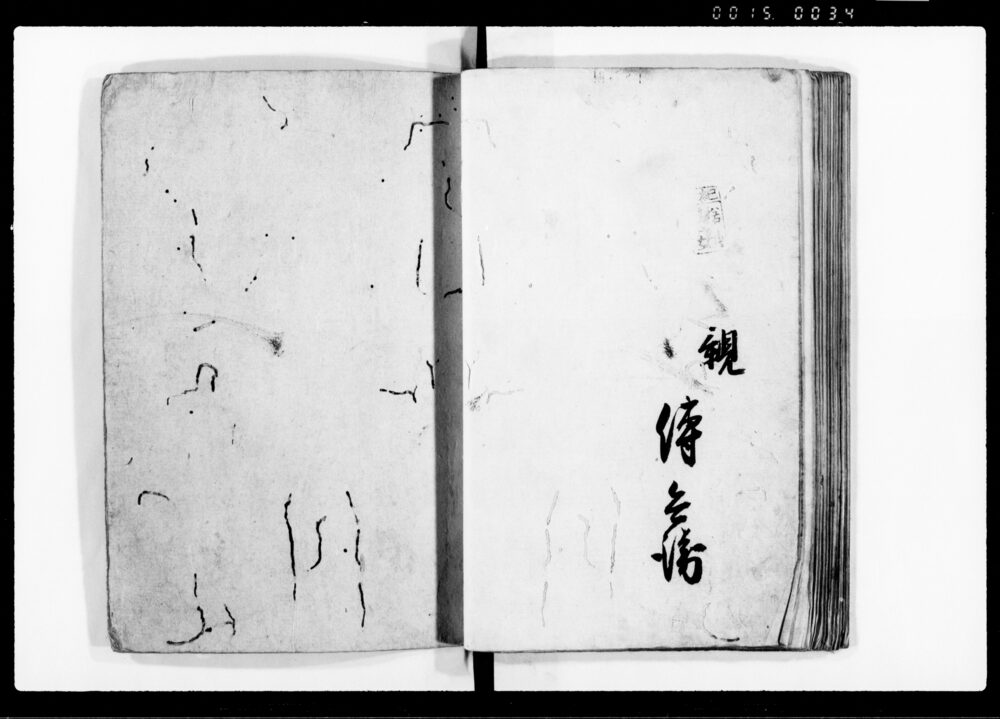 0015 0034
親
傳兵衛